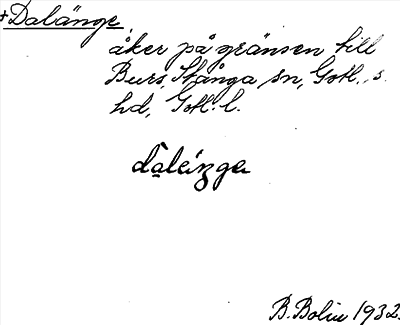 +Dalänge,
åker på gränsen till
Burs, Stånga sn, Gotl. s.
hd, Gotl. l.
B. Bolin 1932.